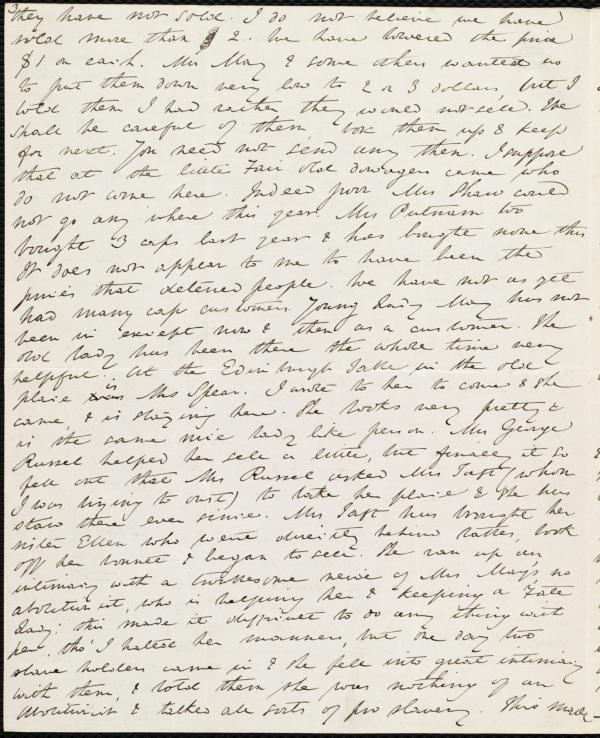 they have not sold. I do not believe we have
sold more than 2. We have lowered the price
$1 on each. Mrs May & some others wanted us
to put them down very low to 2 or 3 dollars, but I
told them I had rather they would not sell. We
shall be careful of them, box them up & keep
for next. You need not send any then. I suppose
that at the little Fair old dowagers came who
do not come here. Indeed poor Mrs Shaw could
not go any where this year. Mrs Putnam too
bought 3 caps last year & has bought none this
It does not appear to me to have been the
prices that deterred people. We have not as yet
had many cap customers. Young Lady May has not
been in except now & then as a customer. The
old lady has been there the whole time very
helpful. At the Edinburgh Table in the old
place is Mrs Spear. I wrote to her to come & she
came, & is staying here. She looks very pretty &
is the same nice lady like person. Mrs George
Russel helped her sell a little, but finally it so
fell out that Mrs Russel asked Mrs Taft (whom
I was trying to oust) to take her place & she has
staid there ever since. Mrs Taft has brought her
sister Ellen who went directly behind tables, took
off her bonnet & began to sell. She ran up an
intimacy with a niece of Mrs May's, no
abolitionist, who is helping her & keeping a
Lady; this made it difficult to do any thing with
her, tho' I hated her manners, but one day two
slave holders came in & she fell into great intimacy
with them, & told them she was nothing of an
abolitionist & talked all sorts of pro slavery. This made